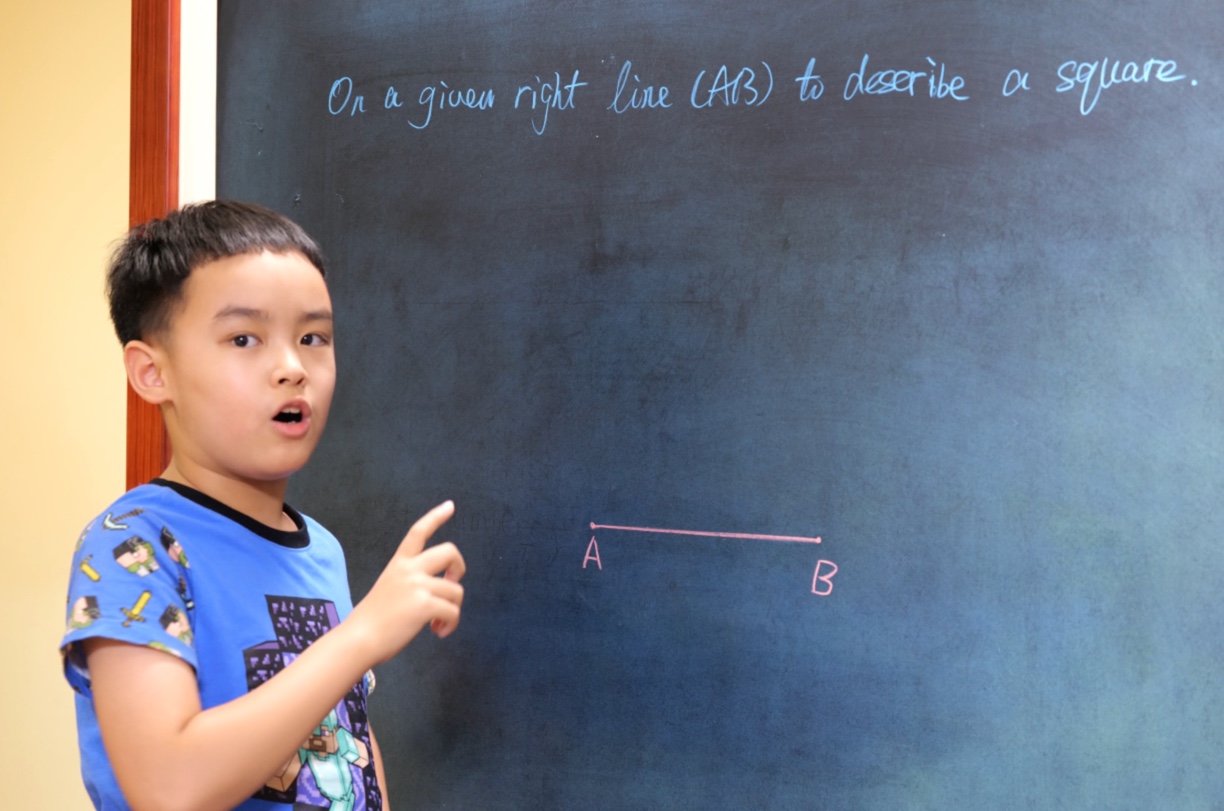 On a given right line (AB) to describe a square.
A
B